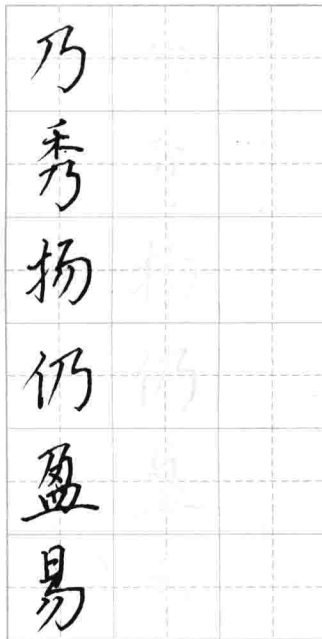 乃
秀
扬
仍
盈
易